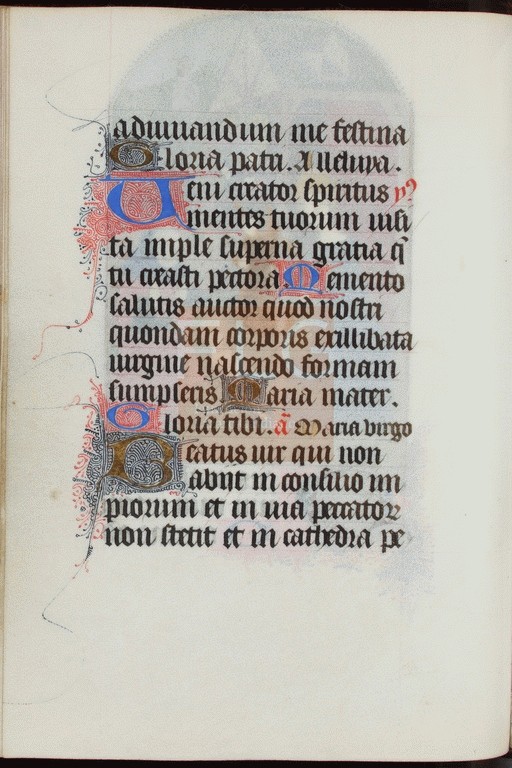 adiuuandum me festina
Gloria patri. Alleluya.
Ueni creator spiritus
mentes tuorum uisi
ta imple superna gratia q̄
tu creasti pectora. Memento
salutis auctor quod nostri
quondam corporis ex illibata
uirgine nascendo formam
sumpseris Maria mater.
Gloria tibi. ā Maria uirgo
Beatus uir qui non
abijt in consilio im
piorum et in uia peccatorꝝ
non stetit et in cathedra pe